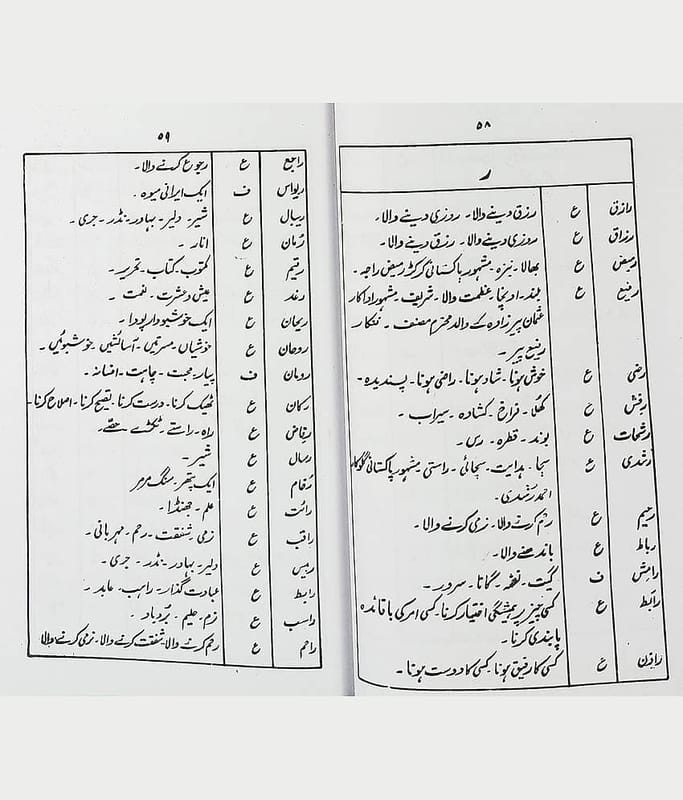 ۵۸
ر
رازق ع رزق دینے والا۔ روزی دینے والا۔
رزاق ع روزی دینے والا۔ رزق دینے والا۔
رمیض ع بھالا۔ نیزہ۔ مشہور پاکستانی کرکٹر رمیض راجہ۔
رفیع ع بلند۔ اونچا۔ عظمت والا۔ شریف۔ مشہور اداکار
عثمان پیرزادہ کے والد محترم مصنف۔ فنکار
رفیع پیر۔
رضی ع خوش ہونا۔ شاد ہونا۔ راضی ہونا۔ پسندیدہ۔
ع کھلا۔ فراخ۔ کشادہ۔ سیراب۔
رشحات ع بوند۔ قطرہ۔ رس۔
رشدی ع سچا۔ ہدایت۔ سچائی۔ راستی۔ مشہور پاکستانی گلوکار
احمد رشدی۔
رحیم ع رحم کرنے والا۔ نرمی کرنے والا۔
رباط ع باندھنے والا۔
رامش ف گیت۔ نغمہ۔ گانا۔ سرور۔
رابط ع کسی چیز پر ہمیشگی اختیار کرنا۔ کسی امر کی باقائدہ
پابندی کرنا۔
ع کسی کا رفیق ہونا۔ کسی کا دوست ہونا۔
۵۹
راجع ع رجوع کرنے والا۔
ریواس ف ایک ایرانی میوہ۔
ریبال ع شیر۔ دلیر۔ بہادر۔ نڈر۔ جری۔
رُمان ع انار۔
رقیم ع مکتوب۔ کتاب۔ تحریر۔
رغد ع عیش و عشرت۔ نعمت۔
ریحان ع ایک خوشبودار پودا۔
روحان ع خوشیاں۔ مسرتیں۔ آسائشیں۔ خوشبوئیں۔
رومان ف پیار۔ محبت۔ چاہت۔ افسانہ۔
ع ٹھیک کرنا۔ درست کرنا۔ تصحیح کرنا۔ اصلاح کرنا۔
رفاض ع راہ۔ راستے۔ ٹکڑے۔ حصّے۔
ع شیر۔
رُخام ع ایک پتھر۔ سنگ مرمر
رائت ع علم۔ جھنڈا۔
ع نرمی۔ شفقت۔ رحم۔ مہربانی۔
ع دلیر۔ بہادر۔ نڈر۔ جری۔
رابط ع عبادت گذار۔ راہب۔ عابد۔
راسب ع نرم۔ حلیم۔ بُردباد۔
راحم ع رحم کرنے والا۔ شفقت کرنے والا۔ نرمی کرنے والا